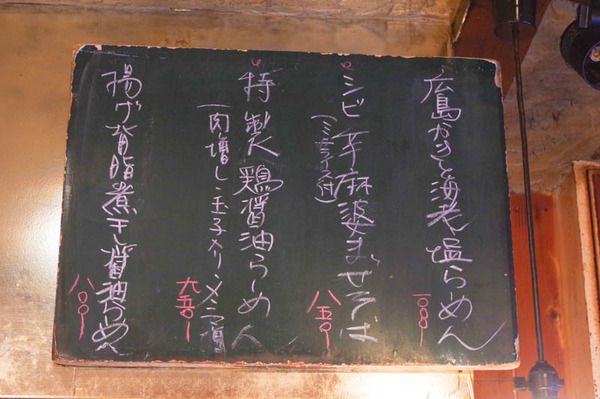 広島かきと海老塩らーめん
一〇〇〇-
シビ辛麻婆まぜそば
(ミニライス付)
八五〇-
特製鶏醤油らーめん
(肉増し・玉子入り・メンマ増
九五〇-
揚げ背脂煮干し醤油らーめん
八〇〇-